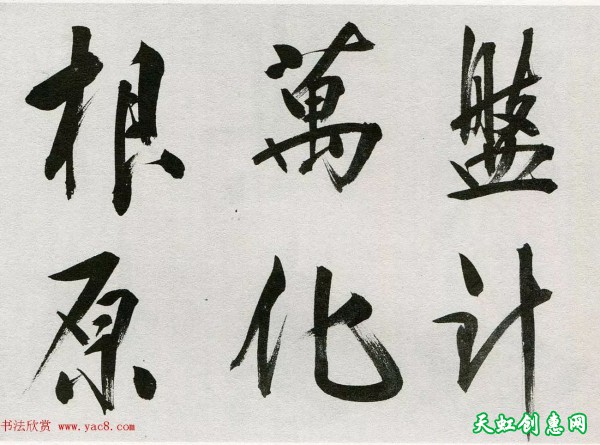 盤计
萬化
根原
书法欣赏 www.yac8.com
天虹创意网